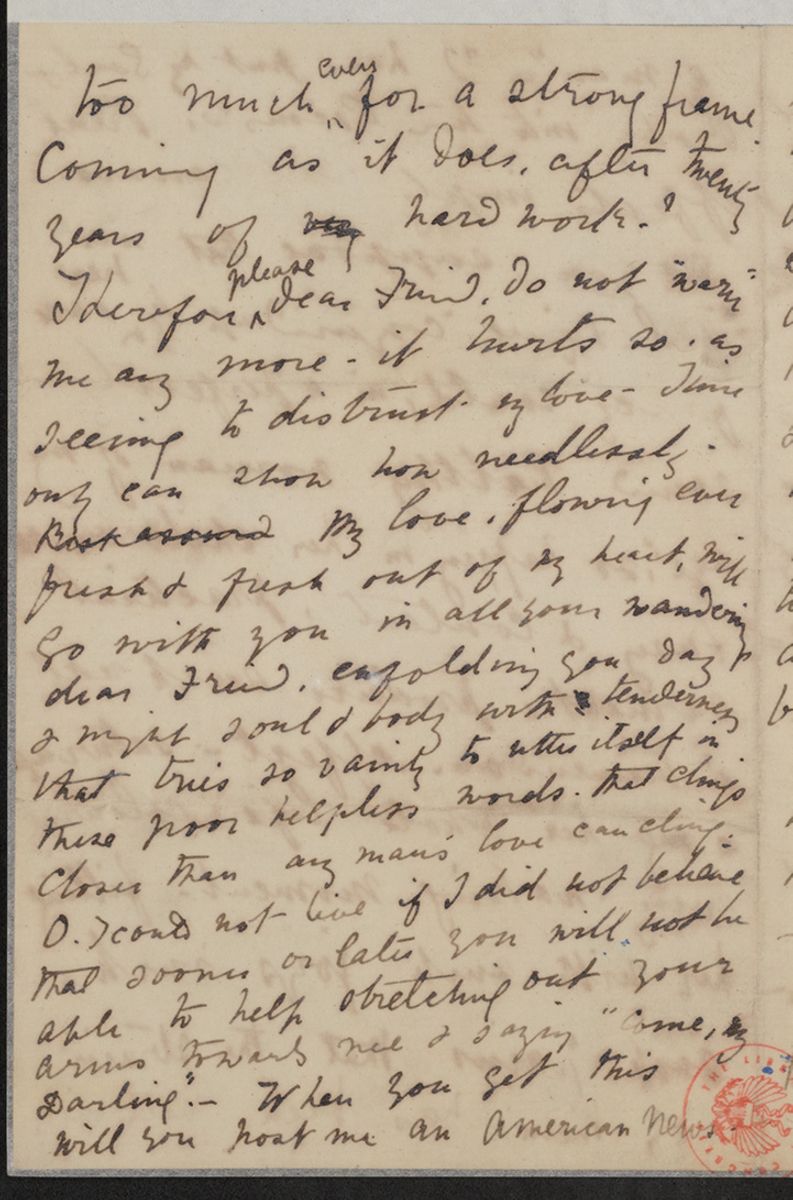 too much even for a strong frame
Coming as it does, after twenty
years of very hard work."
Therefore please dear Friend, do not "warn"
me any more - it hurts so. as
seeming to distrust my love - Time
only can show how needlessly.
Rest assured My love, flowing ever
fresh & fresh out of my heart, will
go with you in all your wanderings
dear Friend, enfolding you day
& night soul & body with tenderness
that tries so vainly to utter itself in
these poor helpless words. that clings
closer than any man's love can cling.
O. I could not live if I did not believe
that sooner or later you will not be
able to help stretching out your
arms towards me & saying "Come, my
Darling". - When you get this
will you post me an American News
THE LIBR
CONGRE